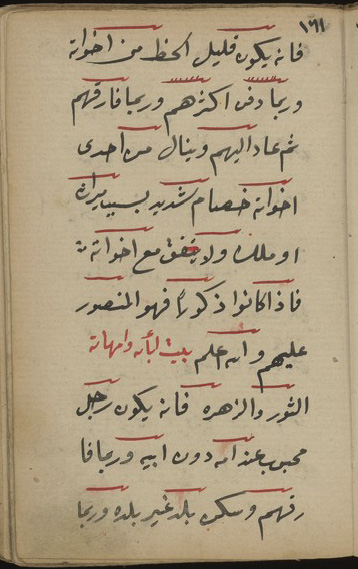 ١٦١
فانه يكون قليل الحظ من اخوانه
وربما دفن اكثرهم وربما فارقهم
ثم عاد اليهم وينال من احدى
اخوانه خصام شديد بسبب ميراث
او ملك ولا يتفق مع اخوانه
فاذا كانوا ذكورا فهو المنصور
عليهم والله اعلم بيت ابائه وامهاته
الثور والزهره فانه يكون رجل
محبوب عند امه دون ابيه وربما فا
رقهم وسكن بلد غير بلده وربما